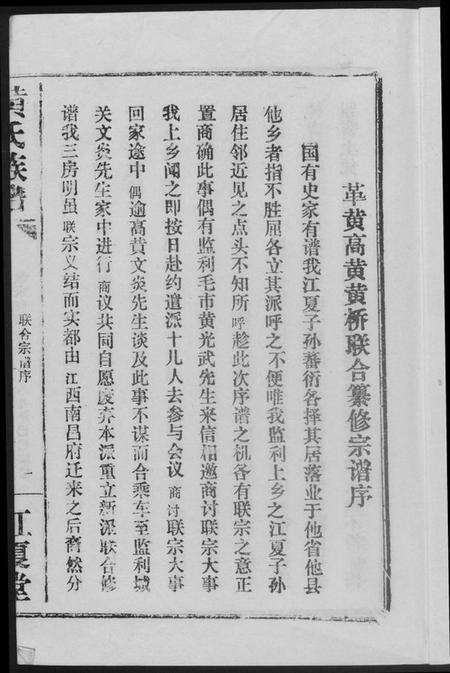 革黄高黄黄桥联合纂修宗谱序
国有史家有谱我江夏子孙蕃衍各择其居落业于他省他县
他乡者指不胜屈各立其派呼之不便唯我监利上乡之江夏子孙
居住邻近见之点头不知所呼趁此次序谱之机各有联宗之意正
置商确此事偶有监利毛市黄光武先生来信相邀商讨联宗大事
我上乡闻之即按日赴约遣派十几人去参与会议商讨联宗大事
回家途中偶逾高黄文炎先生谈及此事不谋而合乘车至监利城
关文炎先生家中进行商议共同自愿废弃本派重立新派联合修
谱我三房明虽联宗义结而实都由江西南昌府迁来之后裔然分
黄氏族谱
联合宗谱序
一
江夏堂